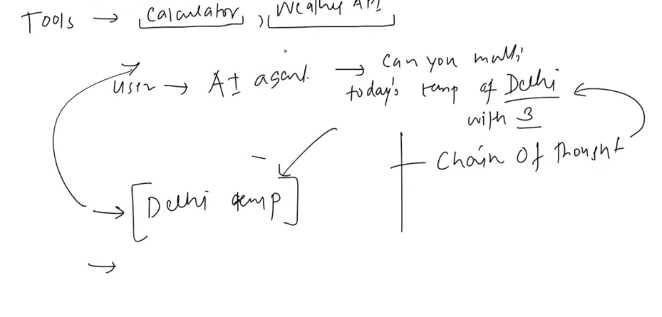 Tools → Calculator, Weather API
User → AI agent → Can you multi
today's temp of Delhi
with 3
Chain Of thought
→ [Delhi temp]
→